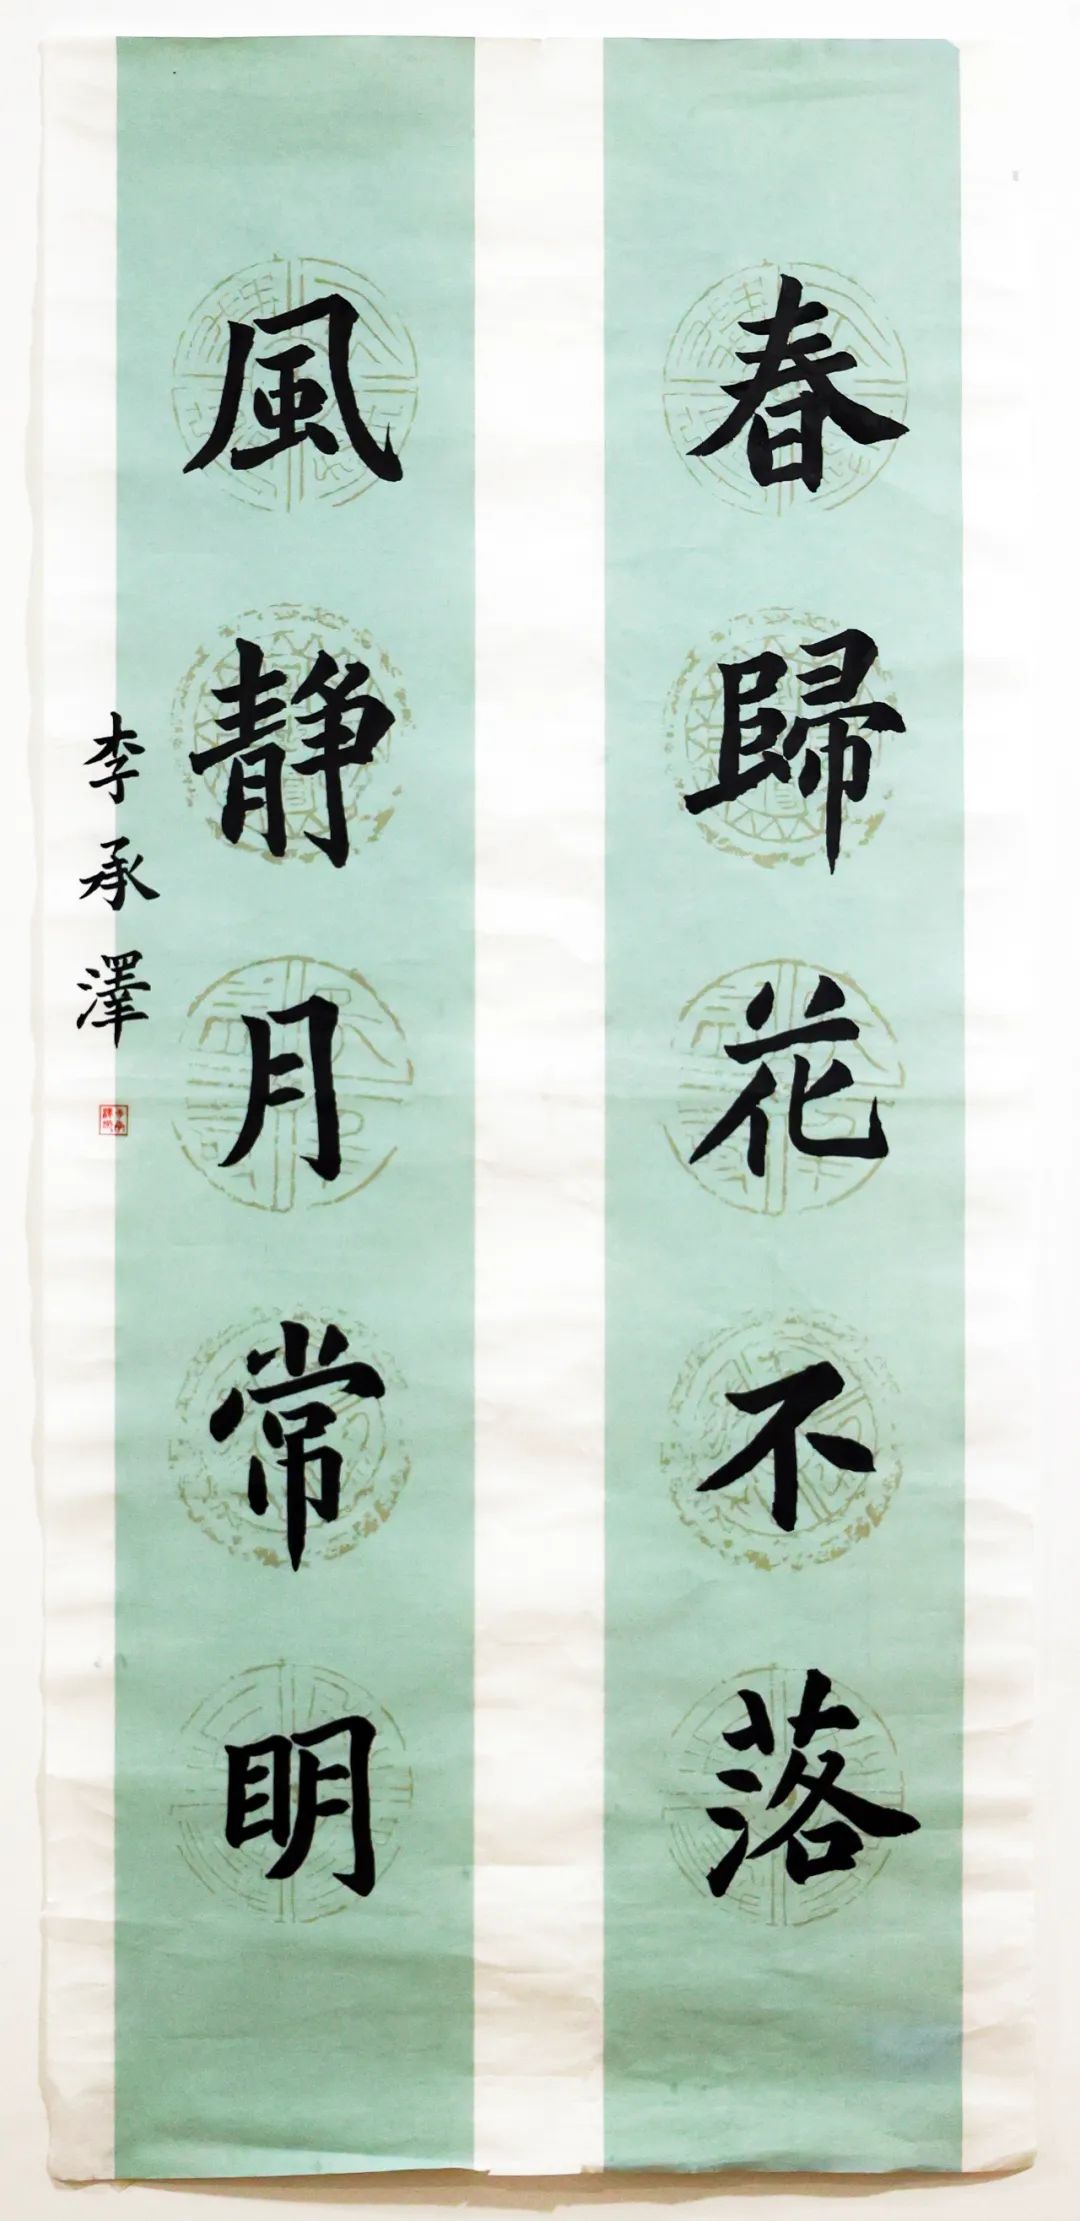 春歸花不落
風静月常明
李承澤